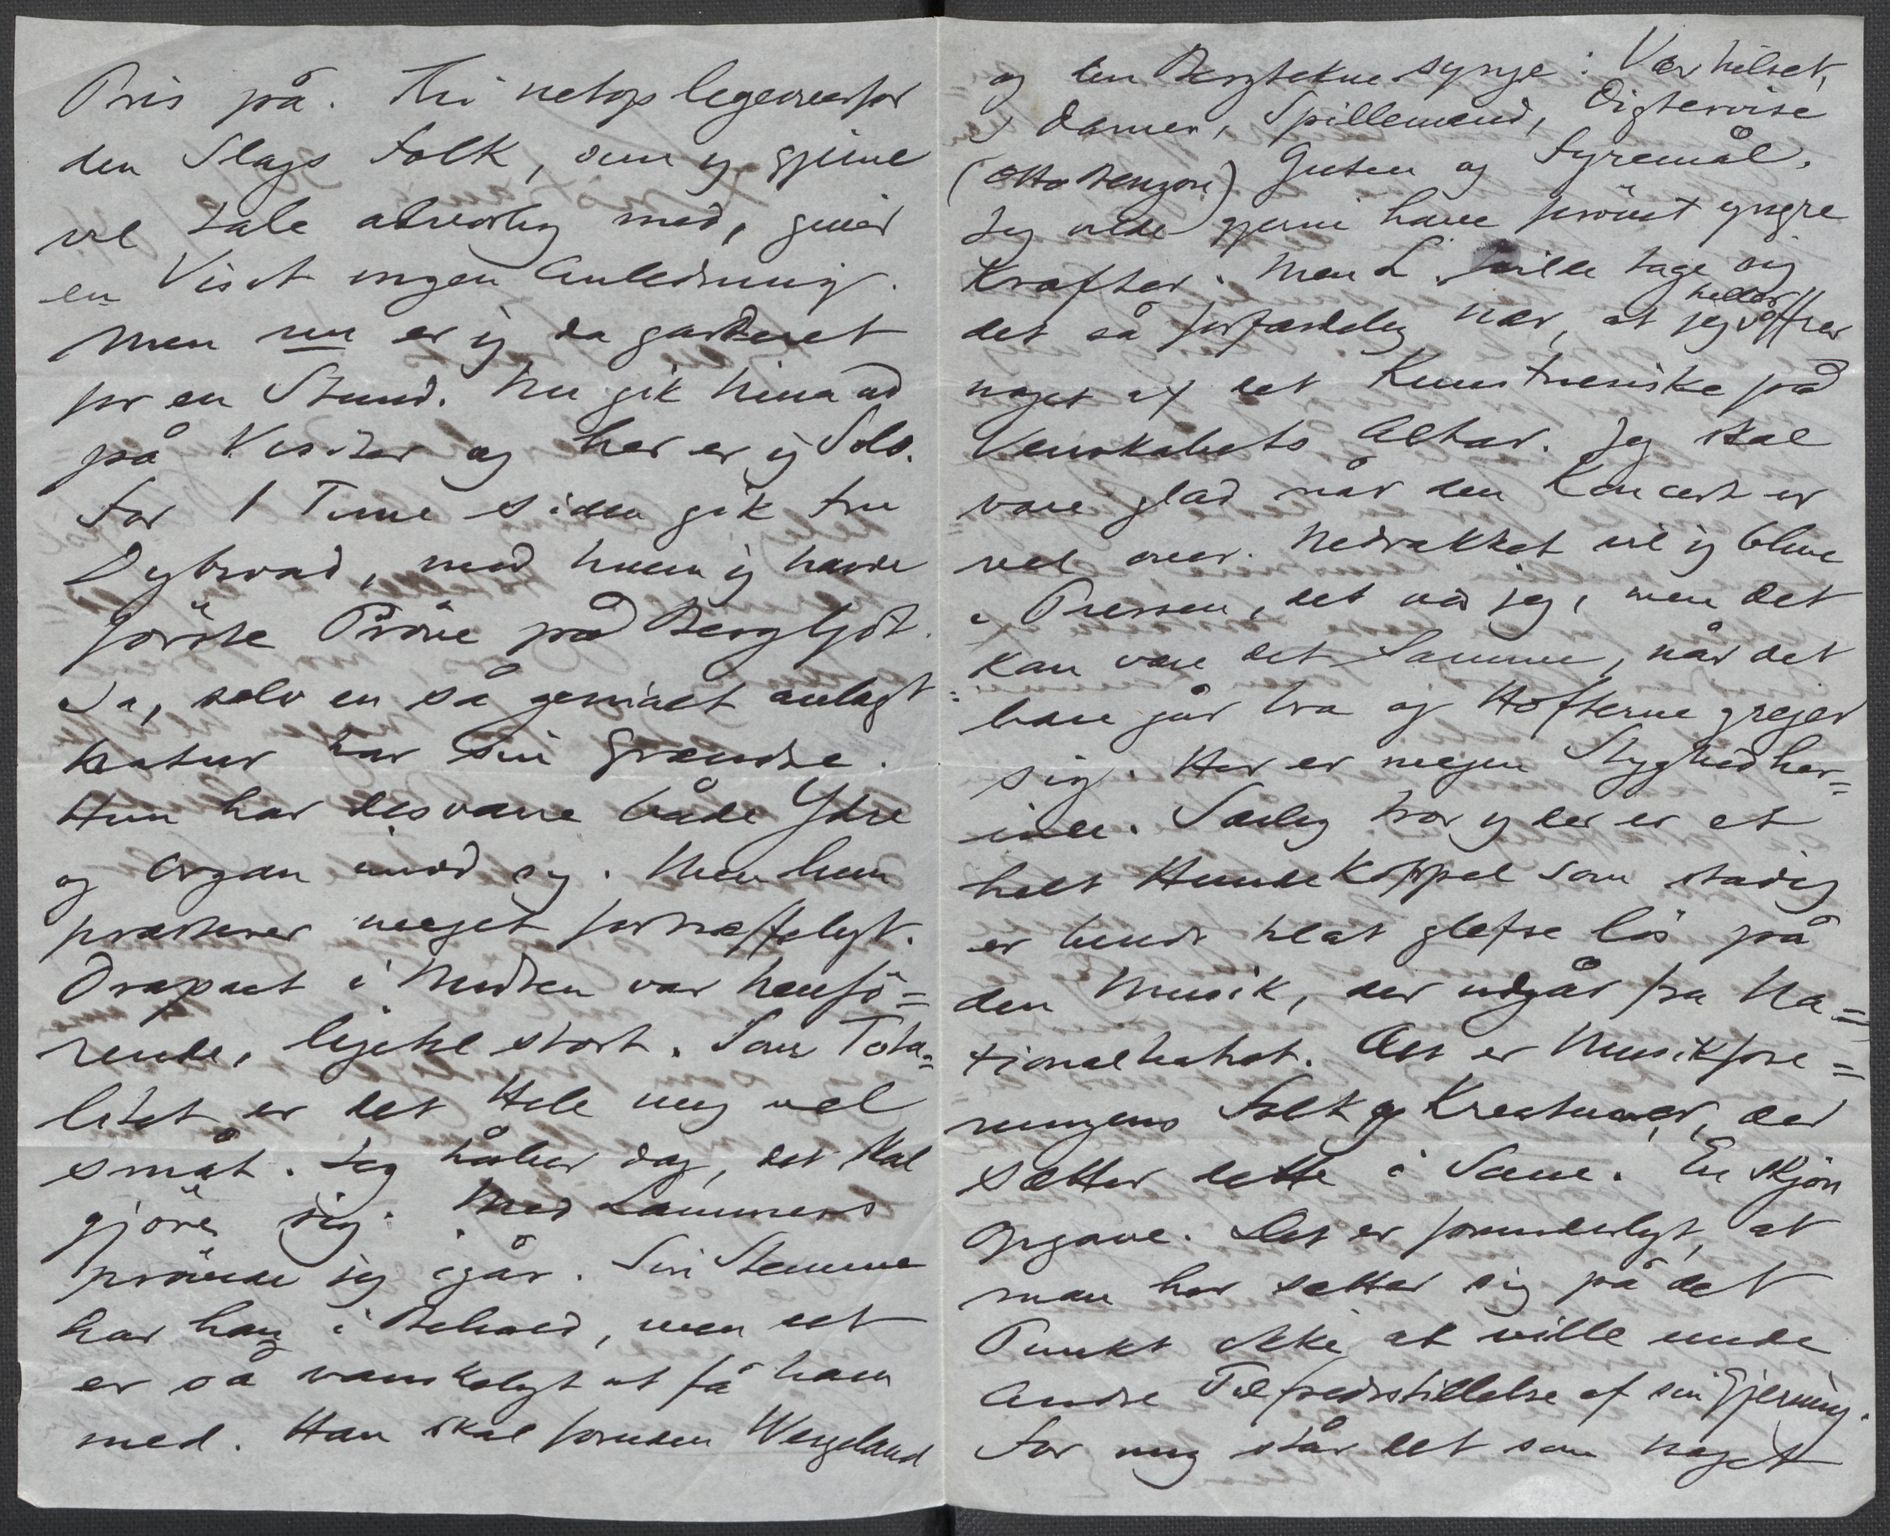 Pris på. Thi netop ligeoverfor
den Slags Folk, som jeg gjerne
vil tale alvorlig med, giver
en Visit ingen Anledning.
Men nu er jeg da garderet
for en Stund. Nu gik Nina ud
på Visiter og her er jeg Solo.
For 1 Time siden gik Fru
Dybwad, med hvem jeg havde
første Prøve på Bergljot.
Ja, selv en så genialt anlagt
Natur har sin Grændse.
Hun har desværre både Ydre
og Organ imod sig. Men hun
præsterer meget fortræffeligt.
Drapaet i Midten var henfø=
rende, ligetil stort. Som Tota=
litet er det Hele mig vel
småt. Jeg håber dog, det skal
gjøre sig. Med Lammers
prøvede jeg igår. Sin Stemme
har han i Behold, men det
er så vanskeligt at få ham
med. Han skal foruden Wergeland
og den Bergtekne synge: Vær hilset,
I Damer, Spillemænd, Digtervise
(Otto Benzon) Guten og Fyremål.
Jeg vilde gjerne have prøvet yngre
Kræfter. Men L. vilde tage sig
det så forfærdelig nær, at jeg heller offrer
noget af det Kunstneriske på
Venskabets Altar. Jeg skal
være glad når den Koncert er
vel over. Nedrakket vil jeg blive
i Pressen, det ved jeg, men det
kan være det Samme, når det
bare går bra og Hofterne grejer
sig. Her er megen Styghed her=
inde. Særlig tror jeg der er et
helt Hundekoppel som stadig
er hidset til at glefse løs på
den Musik, der udgår fra Na=
tionaltheatret. Det er Musikfore=
ningens Folk og Kreaturer, der
sætter dette i Scene. En skjøn
Opgave. Det er forunderligt, at
man her sætter sig på det
Punkt ikke at ville unde
Andre Tilfredsstillelse af sin Gjerning.
For mig står det som noget